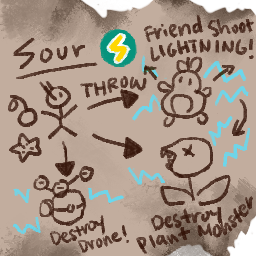 Sour
Friend Shoot
LIGHTNING!
THROW
Destroy
Drone!
Destroy
Plant Monster